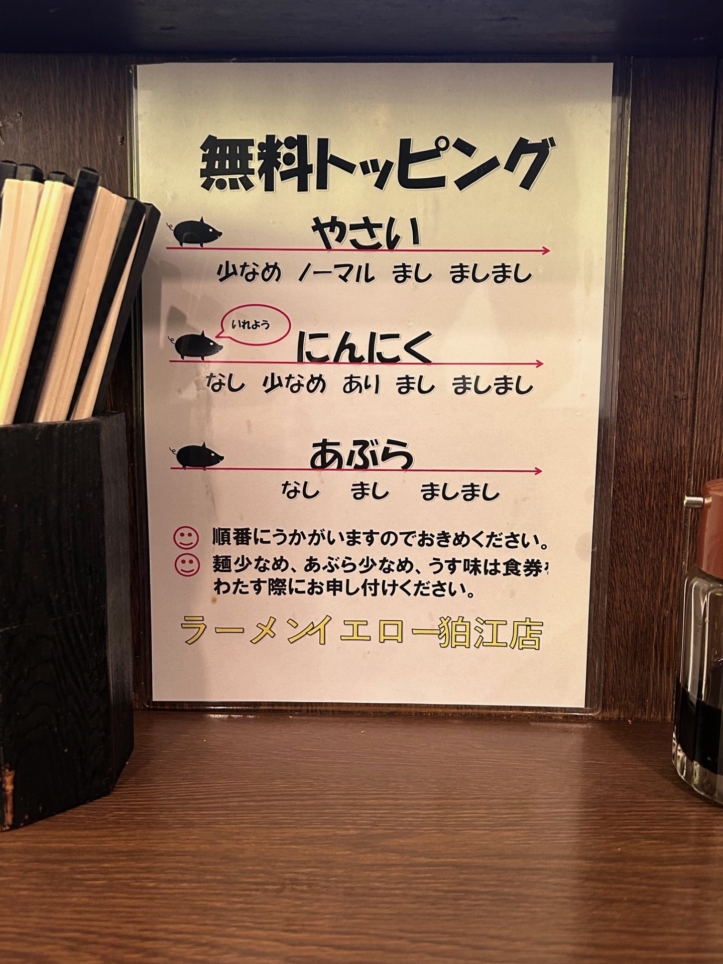 無料トッピング
やさい
少なめ ノーマル まし ましまし
いれよう
にんにく
なし 少なめ あり まし ましまし
あぶら
なし まし ましまし
順番にうかがいますのでおきめください。
麺少なめ、あぶら少なめ、うす味は食券
わたす際にお申し付けください。
ラーメンイエロー狛江店